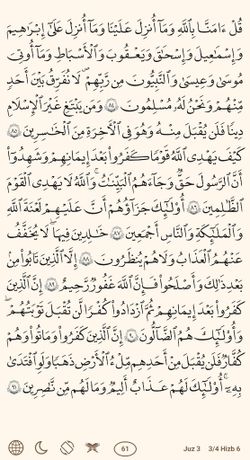 قُلْ ءَامَنَّا بِٱللَّهِ وَمَآ أُنزِلَ عَلَيْنَا وَمَآ أُنزِلَ عَلَىٰٓ إِبْرَٰهِيمَ
وَإِسْمَٰعِيلَ وَإِسْحَٰقَ وَيَعْقُوبَ وَٱلْأَسْبَاطِ وَمَآ أُوتِىَ
مُوسَىٰ وَعِيسَىٰ وَٱلنَّبِيُّونَ مِن رَّبِّهِمْ لَا نُفَرِّقُ بَيْنَ أَحَدٍ
مِّنْهُمْ وَنَحْنُ لَهُۥ مُسْلِمُونَ ٨٤ وَمَن يَبْتَغِ غَيْرَ ٱلْإِسْلَٰمِ
دِينًا فَلَن يُقْبَلَ مِنْهُ وَهُوَ فِى ٱلْءَاخِرَةِ مِنَ ٱلْخَٰسِرِينَ ٨٥
كَيْفَ يَهْدِى ٱللَّهُ قَوْمًا كَفَرُوا۟ بَعْدَ إِيمَٰنِهِمْ وَشَهِدُوٓا۟
أَنَّ ٱلرَّسُولَ حَقٌّ وَجَآءَهُمُ ٱلْبَيِّنَٰتُ ۚ وَٱللَّهُ لَا يَهْدِى ٱلْقَوْمَ
ٱلظَّٰلِمِينَ ٨٦ أُو۟لَٰٓئِكَ جَزَآؤُهُمْ أَنَّ عَلَيْهِمْ لَعْنَةَ ٱللَّهِ
وَٱلْمَلَٰٓئِكَةِ وَٱلنَّاسِ أَجْمَعِينَ ٨٧ خَٰلِدِينَ فِيهَا لَا يُخَفَّفُ
عَنْهُمُ ٱلْعَذَابُ وَلَا هُمْ يُنظَرُونَ ٨٨ إِلَّا ٱلَّذِينَ تَابُوا۟ مِنۢ
بَعْدِ ذَٰلِكَ وَأَصْلَحُوا۟ فَإِنَّ ٱللَّهَ غَفُورٌ رَّحِيمٌ ٨٩ إِنَّ ٱلَّذِينَ
كَفَرُوا۟ بَعْدَ إِيمَٰنِهِمْ ثُمَّ ٱزْدَادُوا۟ كُفْرًا لَّن تُقْبَلَ تَوْبَتُهُمْ
وَأُو۟لَٰٓئِكَ هُمُ ٱلضَّآلُّونَ ٩٠ إِنَّ ٱلَّذِينَ كَفَرُوا۟ وَمَاتُوا۟ وَهُمْ
كُفَّارٌ فَلَن يُقْبَلَ مِنْ أَحَدِهِم مِّلْءُ ٱلْأَرْضِ ذَهَبًا وَلَوِ ٱفْتَدَىٰ
بِهِۦٓ ۗ أُو۟لَٰٓئِكَ لَهُمْ عَذَابٌ أَلِيمٌ وَمَا لَهُم مِّن نَّٰصِرِينَ ٩١
61 Juz 3 3/4 Hizb 6